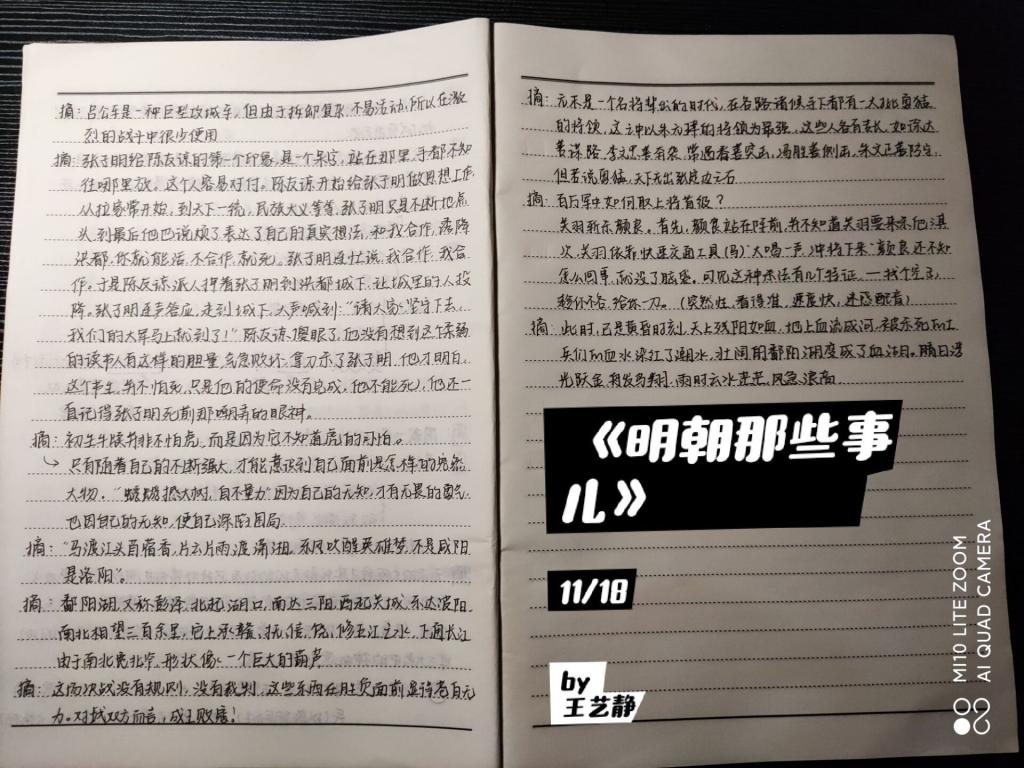 摘：吕公车是一种巨型攻城车，但由于拆卸复杂，不易活动，所以在激
烈的战斗中很少使用
摘：张子明给陈友谅的第一个印象，是个呆子，站在那里，手都不知
往哪里放。这个人容易对付。陈友谅开始给张子明做思想工作
从拉家常开始，到天下一统，民族大义等等，张子明只是不断地点
头，到最后他也说烦了表达了自己的真实想法，和我合作，诱降
洪都，你就能活，不合作，就死。张子明连忙说，我合作，我合
作。于是陈友谅派人押着张子明到洪都城下，让城里的人投
降。张子明连声答应，走到城下，大声喊到："诸人宜坚守下去，
我们的大军马上就到了！"陈友谅傻眼了，他没有想到这个柔弱
的读书人有这样的胆量，气急败坏，拿刀杀了张子明，他才明白，
这个书生，并不怕死，只是他的使命没有完成，他不能死），他还一
直记得张子明死前那嘲弄的眼神。
摘：初生牛犊并非不怕虎，而是因为它不知道虎的可怕。
只有随着自己的不断强大，才能意识到自己面前是怎样的庞然
大物。"蚍蜉撼大树，自不量力"因为自己的无知，才有无畏的勇气
也因自己的无知，便自己深陷困局
摘："马渡江头苜蓿香，片云片雨渡潇湘。东风吹醒英雄梦，不是咸阳
是洛阳"。
摘：鄱阳湖，又称彭泽，北起湖口，南达三阳，西起关城，东达波阳
南北相望三百余里，它上承赣、抚、信、饶、修五江之水，下通长江
由于南北宽北窄，形状像一个巨大的葫芦
摘：这场决战没有规则，没有裁判，这些东西在胜负面前显得苍白无
力。对战双方而言，成王败寇！
摘：元末是一个名将辈出的时代，在各路诸侯手下都有一大批勇猛
的将领，这之中以朱元璋的将领为最强，这些人各有专长，如徐达
善谋略，李文忠善奇袭，常遇春善突击，冯胜善侧击，朱文正善防守，
但若说勇猛，天下无出张定边之右
摘：百万军中如何取上将首级？
关羽斩杀颜良。首先，颜良站在阵前，并不知道关羽要来杀他，其
次，关羽依靠快速交通工具（马）"大喝一声，冲将下来"颜良还不知
怎么回事，就没了脑袋。可见这种杀法有几个特征，一找个空子，
趁你不备，给你一刀。（突然性，看得准，速度快，还添配音）
摘：此时，已是黄昏时刻，天上残阳如血，地上血流成河，被杀死的士
兵们的血水染红了湖水，壮阔的鄱阳湖变成了血湖。晴日浮
光跃金，
雨时云水茫茫，风急浪高
《明朝那些事
儿》
11/18
by
王艺静
MI 10 LITE ZOOM
AI QUAD CAMERA